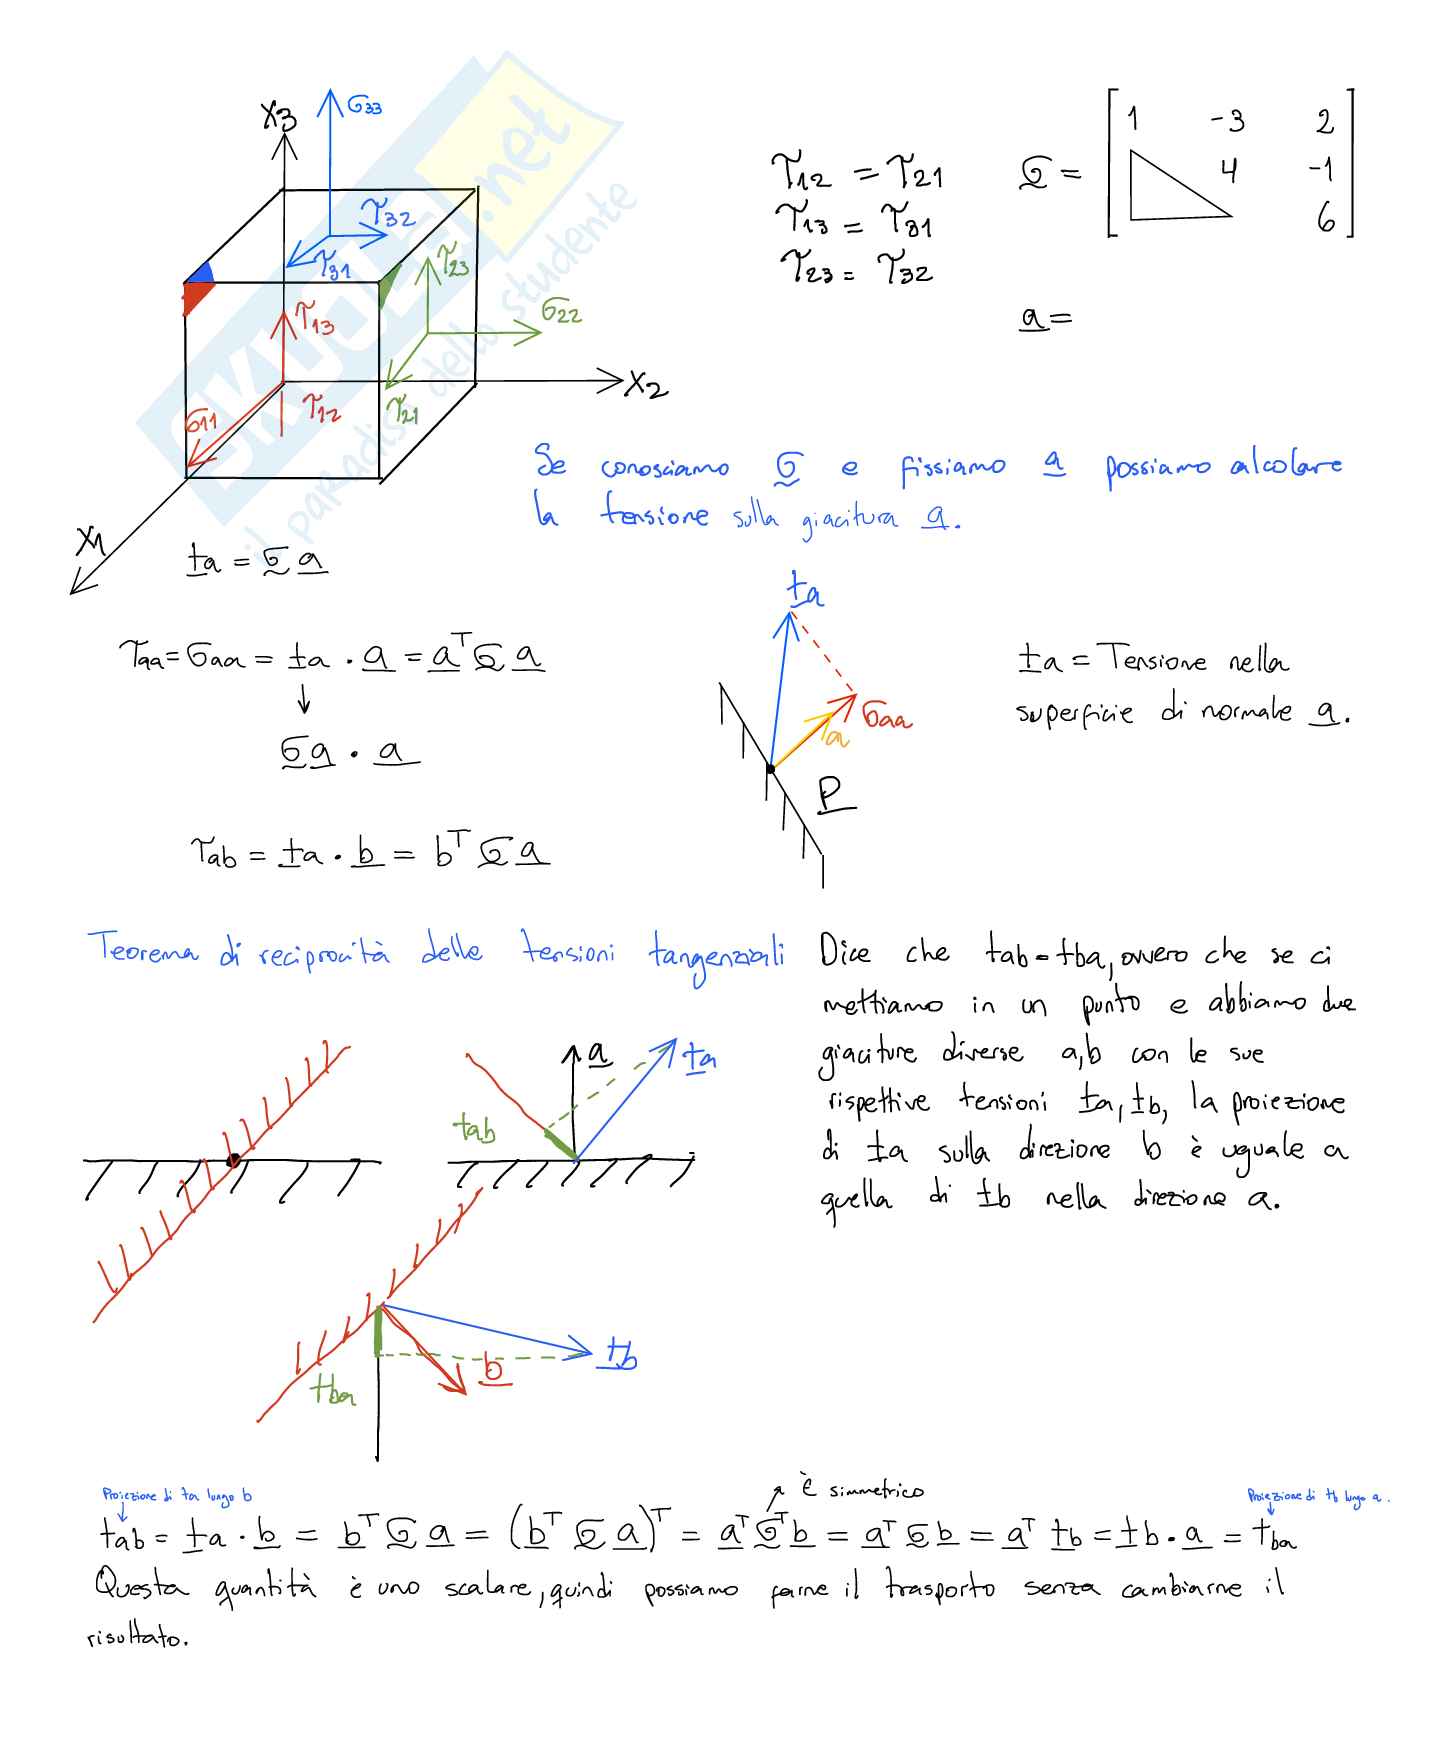 X3
σ33
τ32
τ31
τ23
σ22
τ13
τ12
τ21
σ11
X2
X1
SKUOLA.net
il paradiso dello studente
τ12 = τ21
τ13 = τ31
τ23 = τ32
σ = [ 1 -3 2
4 -1
6 ]
a =
Se conosciamo σ e fissiamo a possiamo alcolare
la tensione sulla giacitura a.
ta = σ a
τaa = σaa = ta · a = aᵀ σ a
↓
σa · a
τab = ta · b = bᵀ σ a
ta
σaa
a
P
ta = Tensione nella
superficie di normale a.
Teorema di reciprocità delle tensioni tangenziali
Dice che tab = tba, ovvero che se ci
mettiamo in un punto e abbiamo due
giaciture diverse a,b con le sue
rispettive tensioni ta, tb, la proiezione
di ta sulla direzione b è uguale a
quella di tb nella direzione a.
a
ta
tab
tb
b
tba
Proiezione di ta lungo b
È simmetrico
Proiezione di tb lungo a.
tab = ta · b = bᵀ σ a = (bᵀ σ a)ᵀ = aᵀ σᵀ b = aᵀ σ b = aᵀ tb = tb · a = tba
Questa quantità è uno scalare, quindi possiamo farne il trasporto senza cambiarne il
risultato.